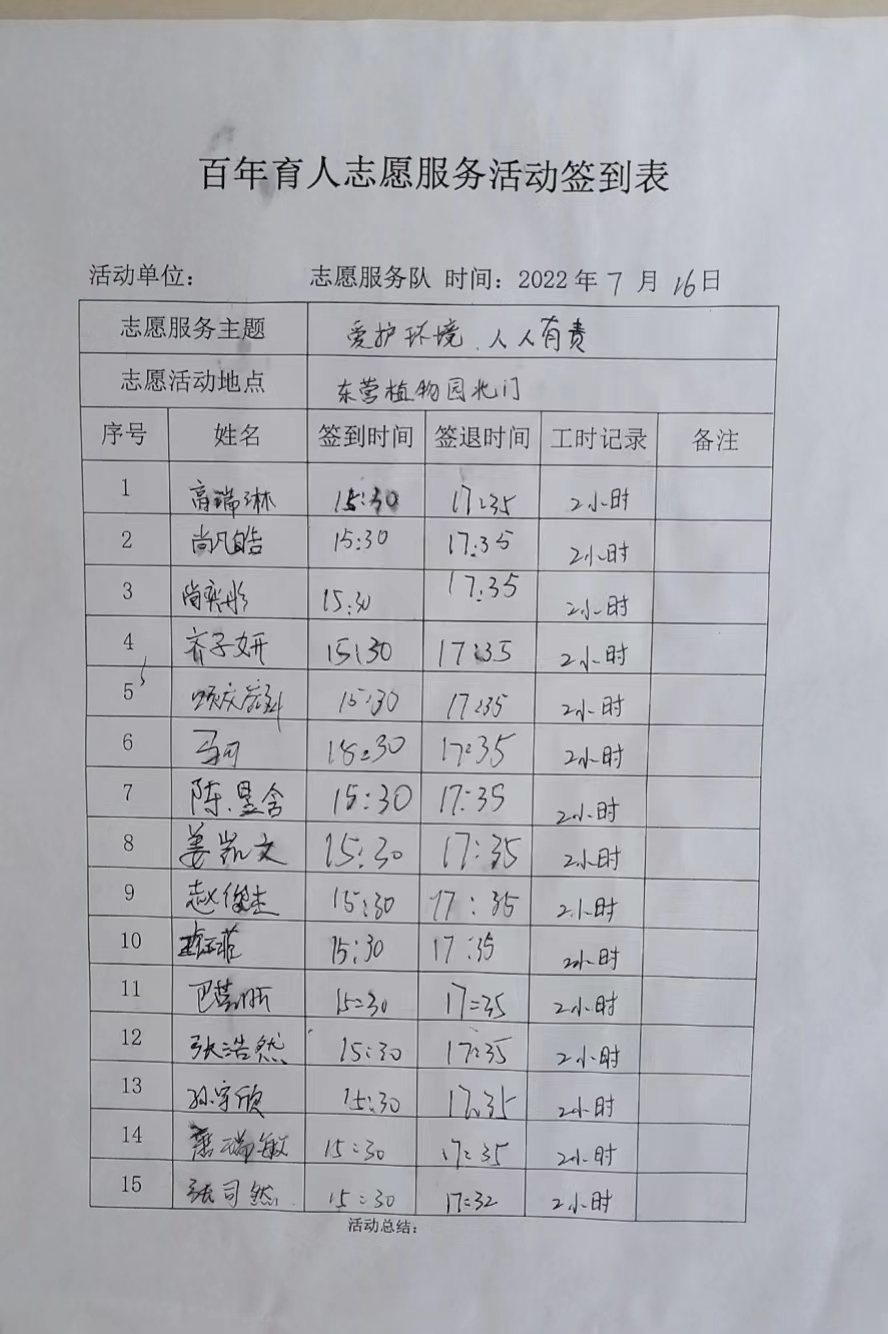 百年育人志愿服务活动签到表
活动单位： 志愿服务队 时间：2022年7月16日
志愿服务主题 爱护环境、人人有责
志愿活动地点 东营植物园北门
序号 姓名 签到时间 签退时间 工时记录 备注
1 高瑞琳 15:30 17:35 2小时
2 尚凡皓 15:30 17:35 2小时
3 尚奕彤 15:30 17:35 2小时
4 齐子妍 15:30 17:35 2小时
5 15:30 17:35 2小时
6 马可 15:30 17:35 2小时
7 陈昱含 15:30 17:35 2小时
8 姜凯文 15:30 17:35 2小时
9 赵俊杰 15:30 17:35 2小时
10 15:30 17:35 2小时
11 15:30 17:35 2小时
12 张浩然 15:30 17:35 2小时
13 孙宇欣 15:30 17:35 2小时
14 瑞敏 15:30 17:35 2小时
15 张司然 15:30 17:32 2小时
活动总结：